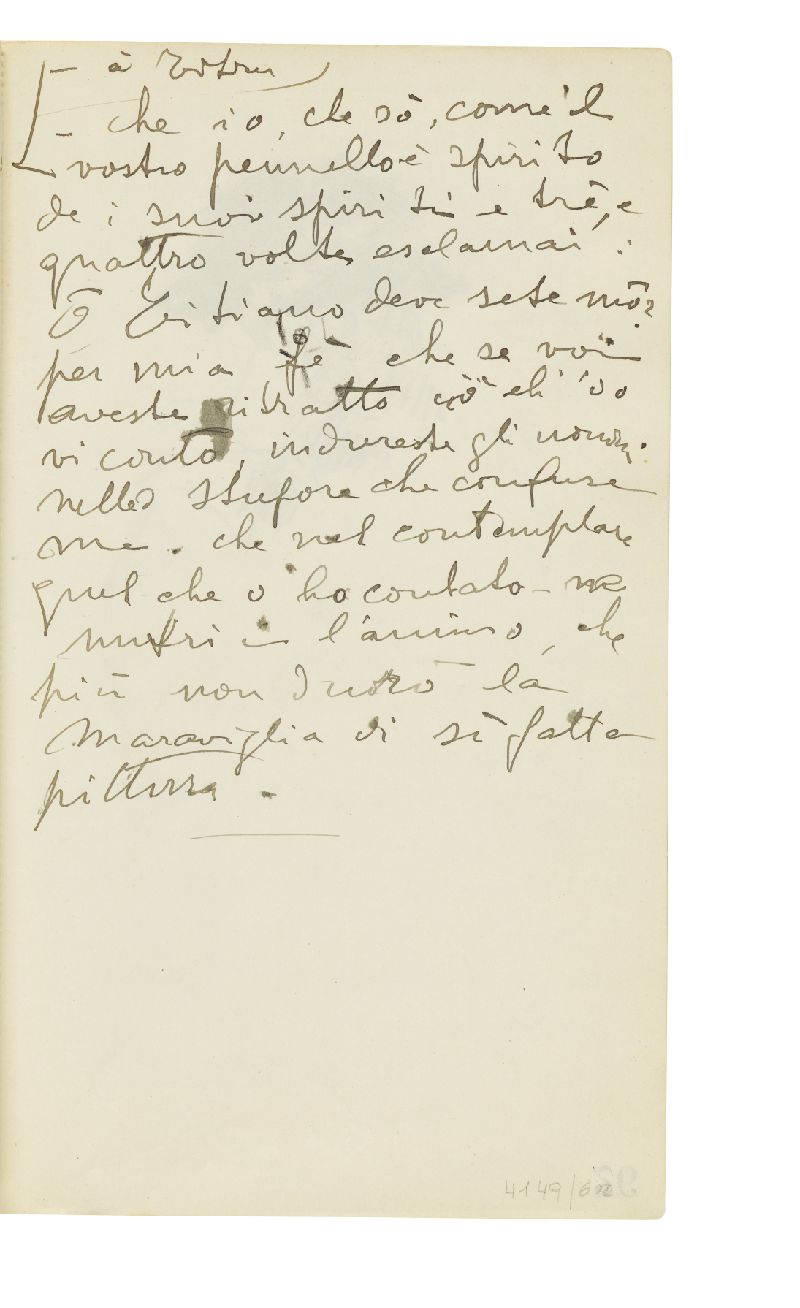 à
- che io, che sò, come 'l
vostro pennello è spirito
de i suoi spiriti e trè, e
quattro volte esclamai:
Ô Titiano dove sete mò?
per mia fè che se voi
aveste ritratto ciò ch' 'io
vi conto, indurreste gli
nello stupore che confuse
me. che nel contemplare
quel che v' ho contato - ne
nutrii l'animo, che
più non durò la
maraviglia di sì fatta
pittura.
4149/